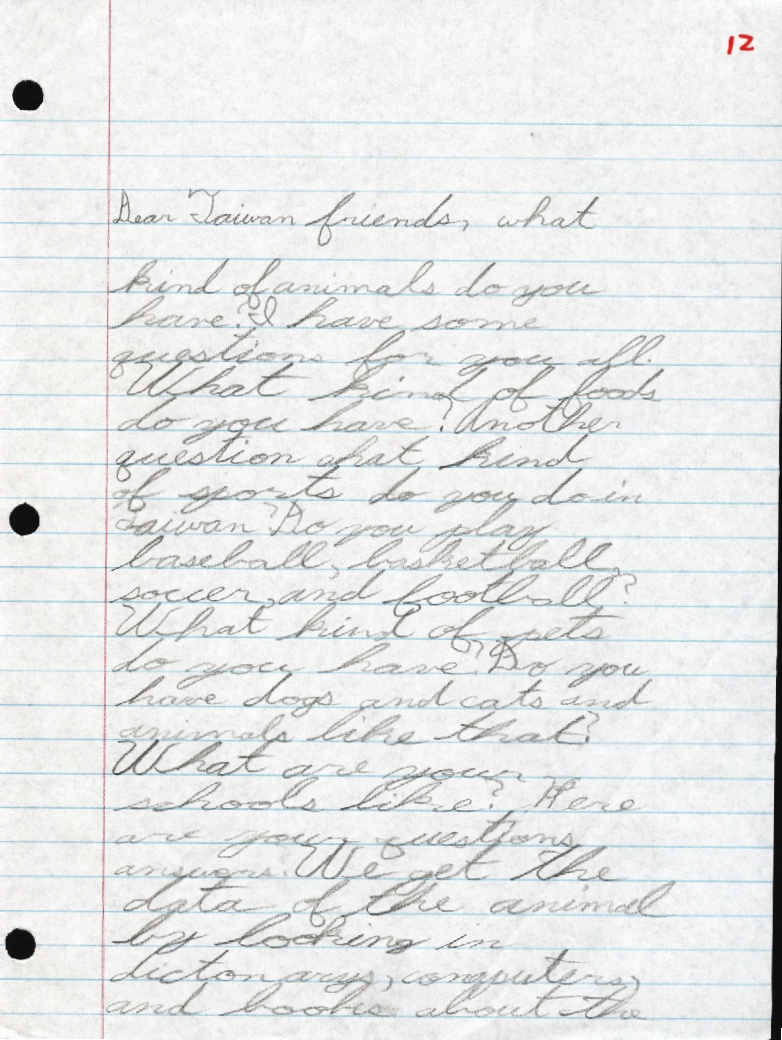 12
Dear Taiwan friends, what
kind of animals do you
have? I have some
questions for you all.
What kind of foods
do you have? Another
question what kind
of sports do you do in
Taiwan? Do you play
baseball, basketball,
soccer, and football?
What kind of pets
do you have? Do you
have dogs and cats and
animals like that?
What are your
schools like? Here
are your questions
answers. We get the
data of the animal
by looking in
dictonarys, computers,
and books about the